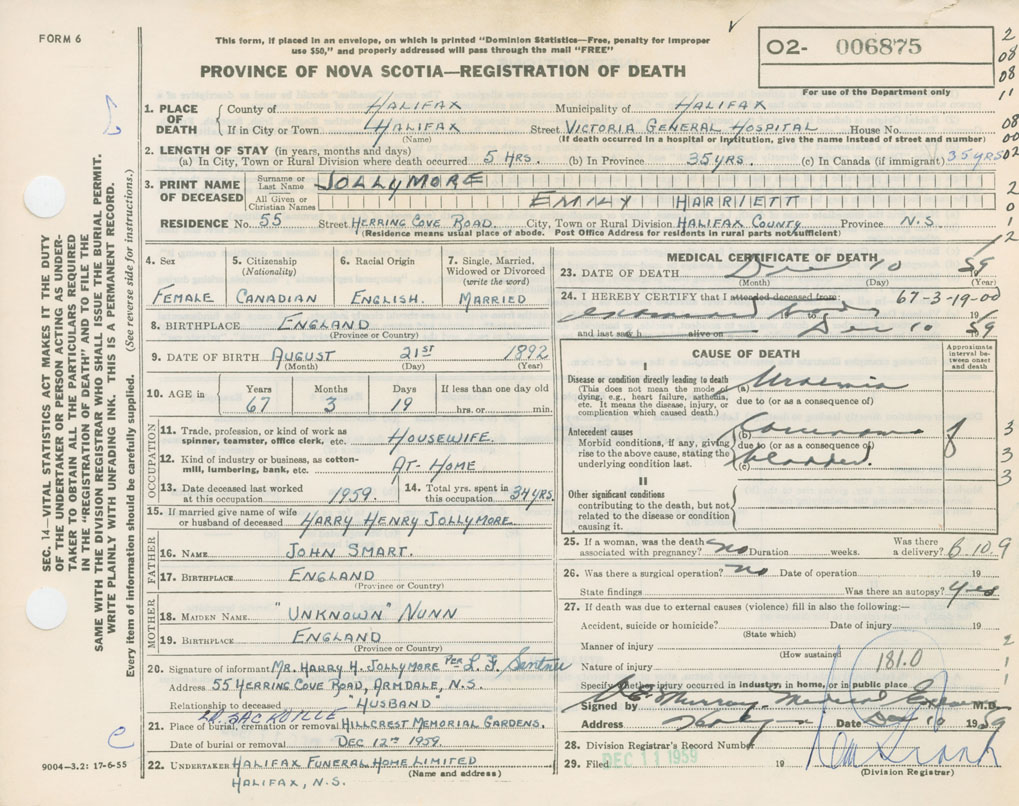 FORM 6
This form, if placed in an envelope, on which is printed "Dominion Statistics—Free, penalty for improper
use $50," and properly addressed will pass through the mail "FREE"
PROVINCE OF NOVA SCOTIA—REGISTRATION OF DEATH
O2- 006875
For use of the Department only
SEC. 14—VITAL STATISTICS ACT MAKES IT THE DUTY
OF THE UNDERTAKER OR PERSON ACTING AS UNDER-
TAKER TO OBTAIN ALL THE PARTICULARS REQUIRED
IN THE "REGISTRATION OF DEATH" AND TO FILE THE
SAME WITH THE DIVISION REGISTRAR WHO SHALL ISSUE THE BURIAL PERMIT.
WRITE PLAINLY WITH UNFADING INK. THIS IS A PERMANENT RECORD.
Every item of information should be carefully supplied. (See reverse side for instructions.)
1. PLACE OF DEATH
County of HALIFAX Municipality of HALIFAX
If in City or Town HALIFAX Street VICTORIA GENERAL HOSPITAL House No.
(Name) (If death occurred in a hospital or institution, give the name instead of street and number)
2. LENGTH OF STAY (in years, months and days)
(a) In City, Town or Rural Division where death occurred 5 HRS. (b) In Province 35 YRS. (c) In Canada (if immigrant) 35 YRS
3. PRINT NAME OF DECEASED
Surname or Last Name JOLLYMORE
All Given or Christian Names EMILY HARRIETT
RESIDENCE No. 55 Street HERRING COVE ROAD. City, Town or Rural Division HALIFAX COUNTY Province N.S
(Residence means usual place of abode. Post Office Address for residents in rural parts not sufficient)
4. Sex FEMALE
5. Citizenship (Nationality) CANADIAN
6. Racial Origin ENGLISH.
7. Single, Married, Widowed or Divorced (write the word) MARRIED
8. BIRTHPLACE ENGLAND
(Province or Country)
9. DATE OF BIRTH AUGUST 21ST 1892
(Month) (Day) (Year)
10. AGE in Years 67 Months 3 Days 19 If less than one day old hrs. or min.
OCCUPATION
11. Trade, profession, or kind of work as spinner, teamster, office clerk, etc. HOUSEWIFE.
12. Kind of industry or business, as cotton-mill, lumbering, bank, etc. AT-HOME
13. Date deceased last worked at this occupation 1959.
14. Total yrs. spent in this occupation 34 YRS.
15. If married give name of wife or husband of deceased HARRY HENRY JOLLYMORE
FATHER
16. NAME JOHN SMART.
17. BIRTHPLACE ENGLAND
(Province or Country)
MOTHER
18. MAIDEN NAME "UNKNOWN" NUNN
19. BIRTHPLACE ENGLAND
(Province or Country)
20. Signature of informant MR. HARRY H. JOLLYMORE PER
Address 55 HERRING COVE ROAD, ARMDALE, N.S.
Relationship to deceased "HUSBAND"
LR. SACKVILLE
21. Place of burial, cremation or removal HILLCREST MEMORIAL GARDENS.
Date of burial or removal DEC 12TH 1959.
22. UNDERTAKER HALIFAX FUNERAL HOME LIMITED
(Name and address)
HALIFAX, N.S.
9004-3.2: 17-6-55
MEDICAL CERTIFICATE OF DEATH
23. DATE OF DEATH Dec 10 59
(Month) (Day) (Year)
24. I HEREBY CERTIFY that I attended deceased from: 67-3-19-00
to 19
and last saw h alive on Dec 10 1959
CAUSE OF DEATH
Approximate interval between onset and death
I
Disease or condition directly leading to death
(This does not mean the mode of dying, e.g., heart failure, asthenia, etc. It means the disease, injury, or complication which caused death.)
(a) Uraemia
due to (or as a consequence of)
Antecedent causes
Morbid conditions, if any, giving rise to the above cause, stating the underlying condition last.
(b) Carcinoma of
due to (or as a consequence of)
(c) bladder.
II
Other significant conditions
contributing to the death, but not related to the disease or condition causing it.
25. If a woman, was the death associated with pregnancy? no Duration weeks. Was there a delivery? 6.10.9
26. Was there a surgical operation? no Date of operation 19
State findings Was there an autopsy? yes
27. If death was due to external causes (violence) fill in also the following:—
Accident, suicide or homicide? Date of injury 19
(State which)
Manner of injury
(How sustained)
Nature of injury 181.0
Specify whether injury occurred in industry, in home, or in public place
Signed by Murray Medical M.D.
Address Date Dec 10 1959
28. Division Registrar's Record Number
29. Filed DEC 11 1959 19
(Division Registrar)